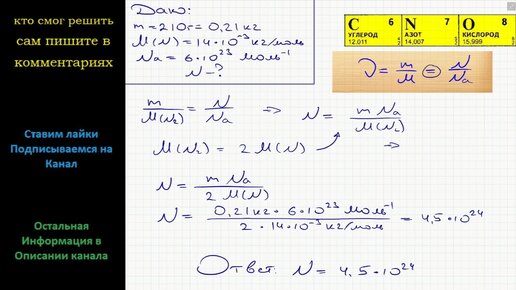 кто смог решить
сам пишите в
комментариях
Ставим лайки
Подписываемся на
Канал
Остальная
Информация в
Описании канала
Дано:
m = 210г = 0,21 кг
M(N) = 14·10⁻³ кг/моль
Na = 6·10²³ моль⁻¹
N - ?
C 6 N 7 O 8
УГЛЕРОД АЗОТ КИСЛОРОД
12.011 14.007 15.999
ν = m/M = N/Na
m/M(N₂) = N/Na ⇒ N = m Na/M(N₂) ⇒
M(N₂) = 2 M(N)
N = m Na/2 M(N)
N = 0,21 кг · 6·10²³ моль⁻¹/2 · 14·10⁻³ кг/моль = 4,5·10²⁴
Ответ: N = 4,5·10²⁴